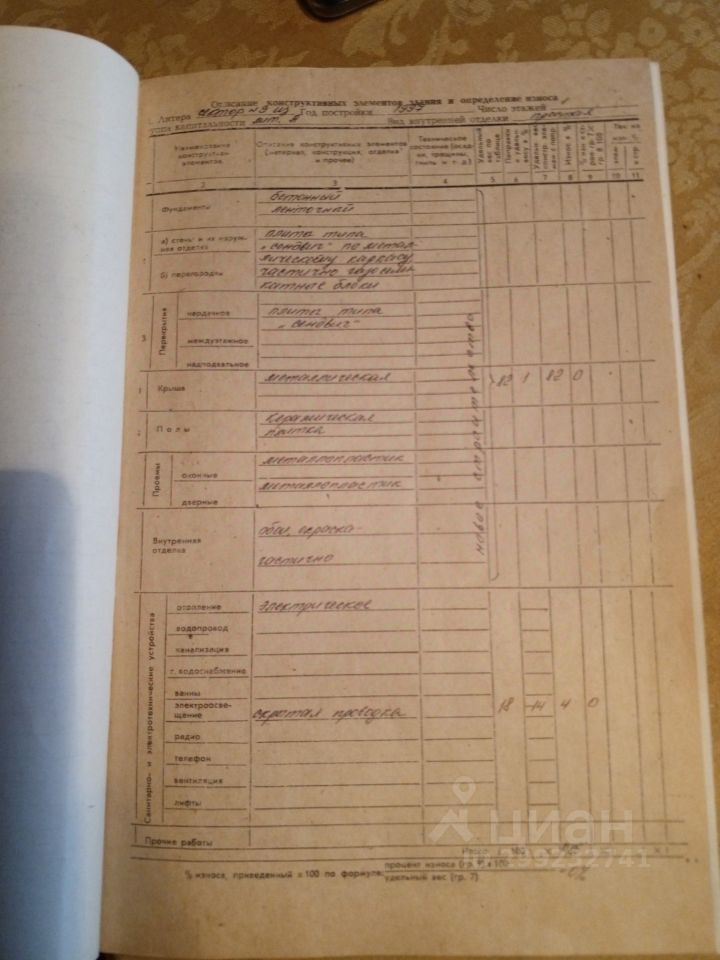 Описание конструктивных элементов здания и определение износа
Литера сектор №3 из Год постройки 1997 Число этажей 1
Группа капитальности лит. А Вид внутренней отделки простая
Наименование конструктивн. элементов
Описание конструктивных элементов (материал, конструкция, отделка и прочее)
Техническое состояние (осадки, трещины, гниль и т. д.)
Удельный вес по таблице
Износ в %
2 3 4 5 6 7 8 9 10 11
Фундаменты бетонный
ленточный
а) стены и их наружная отделка плита типа
„сендвич" по метал-
лическому каркасу
б) перегородки частично газосили-
катные блоки
3 Перекрытия
чердачное плита типа
„сендвич"
междуэтажное
надподвальное
Крыша металлическая 82 1 82 0
Полы керамическая
плитка
Проемы
оконные металлопластик
дверные металлопластик
новое строительство
Внутренняя отделка обои, окраска-
частично
Санитарно- и электротехнические устройства
отопление электрическое
водопровод
канализация
г. водоснабжение
ванны
электроосвещение скрытая проводка 18 -14 4 0
радио
телефон
вентиляция
лифты
Прочие работы
Итого 100 х
% износа, приведенный к 100 по формуле: процент износа (гр. 9) х 100
удельный вес (гр. 7)
циан